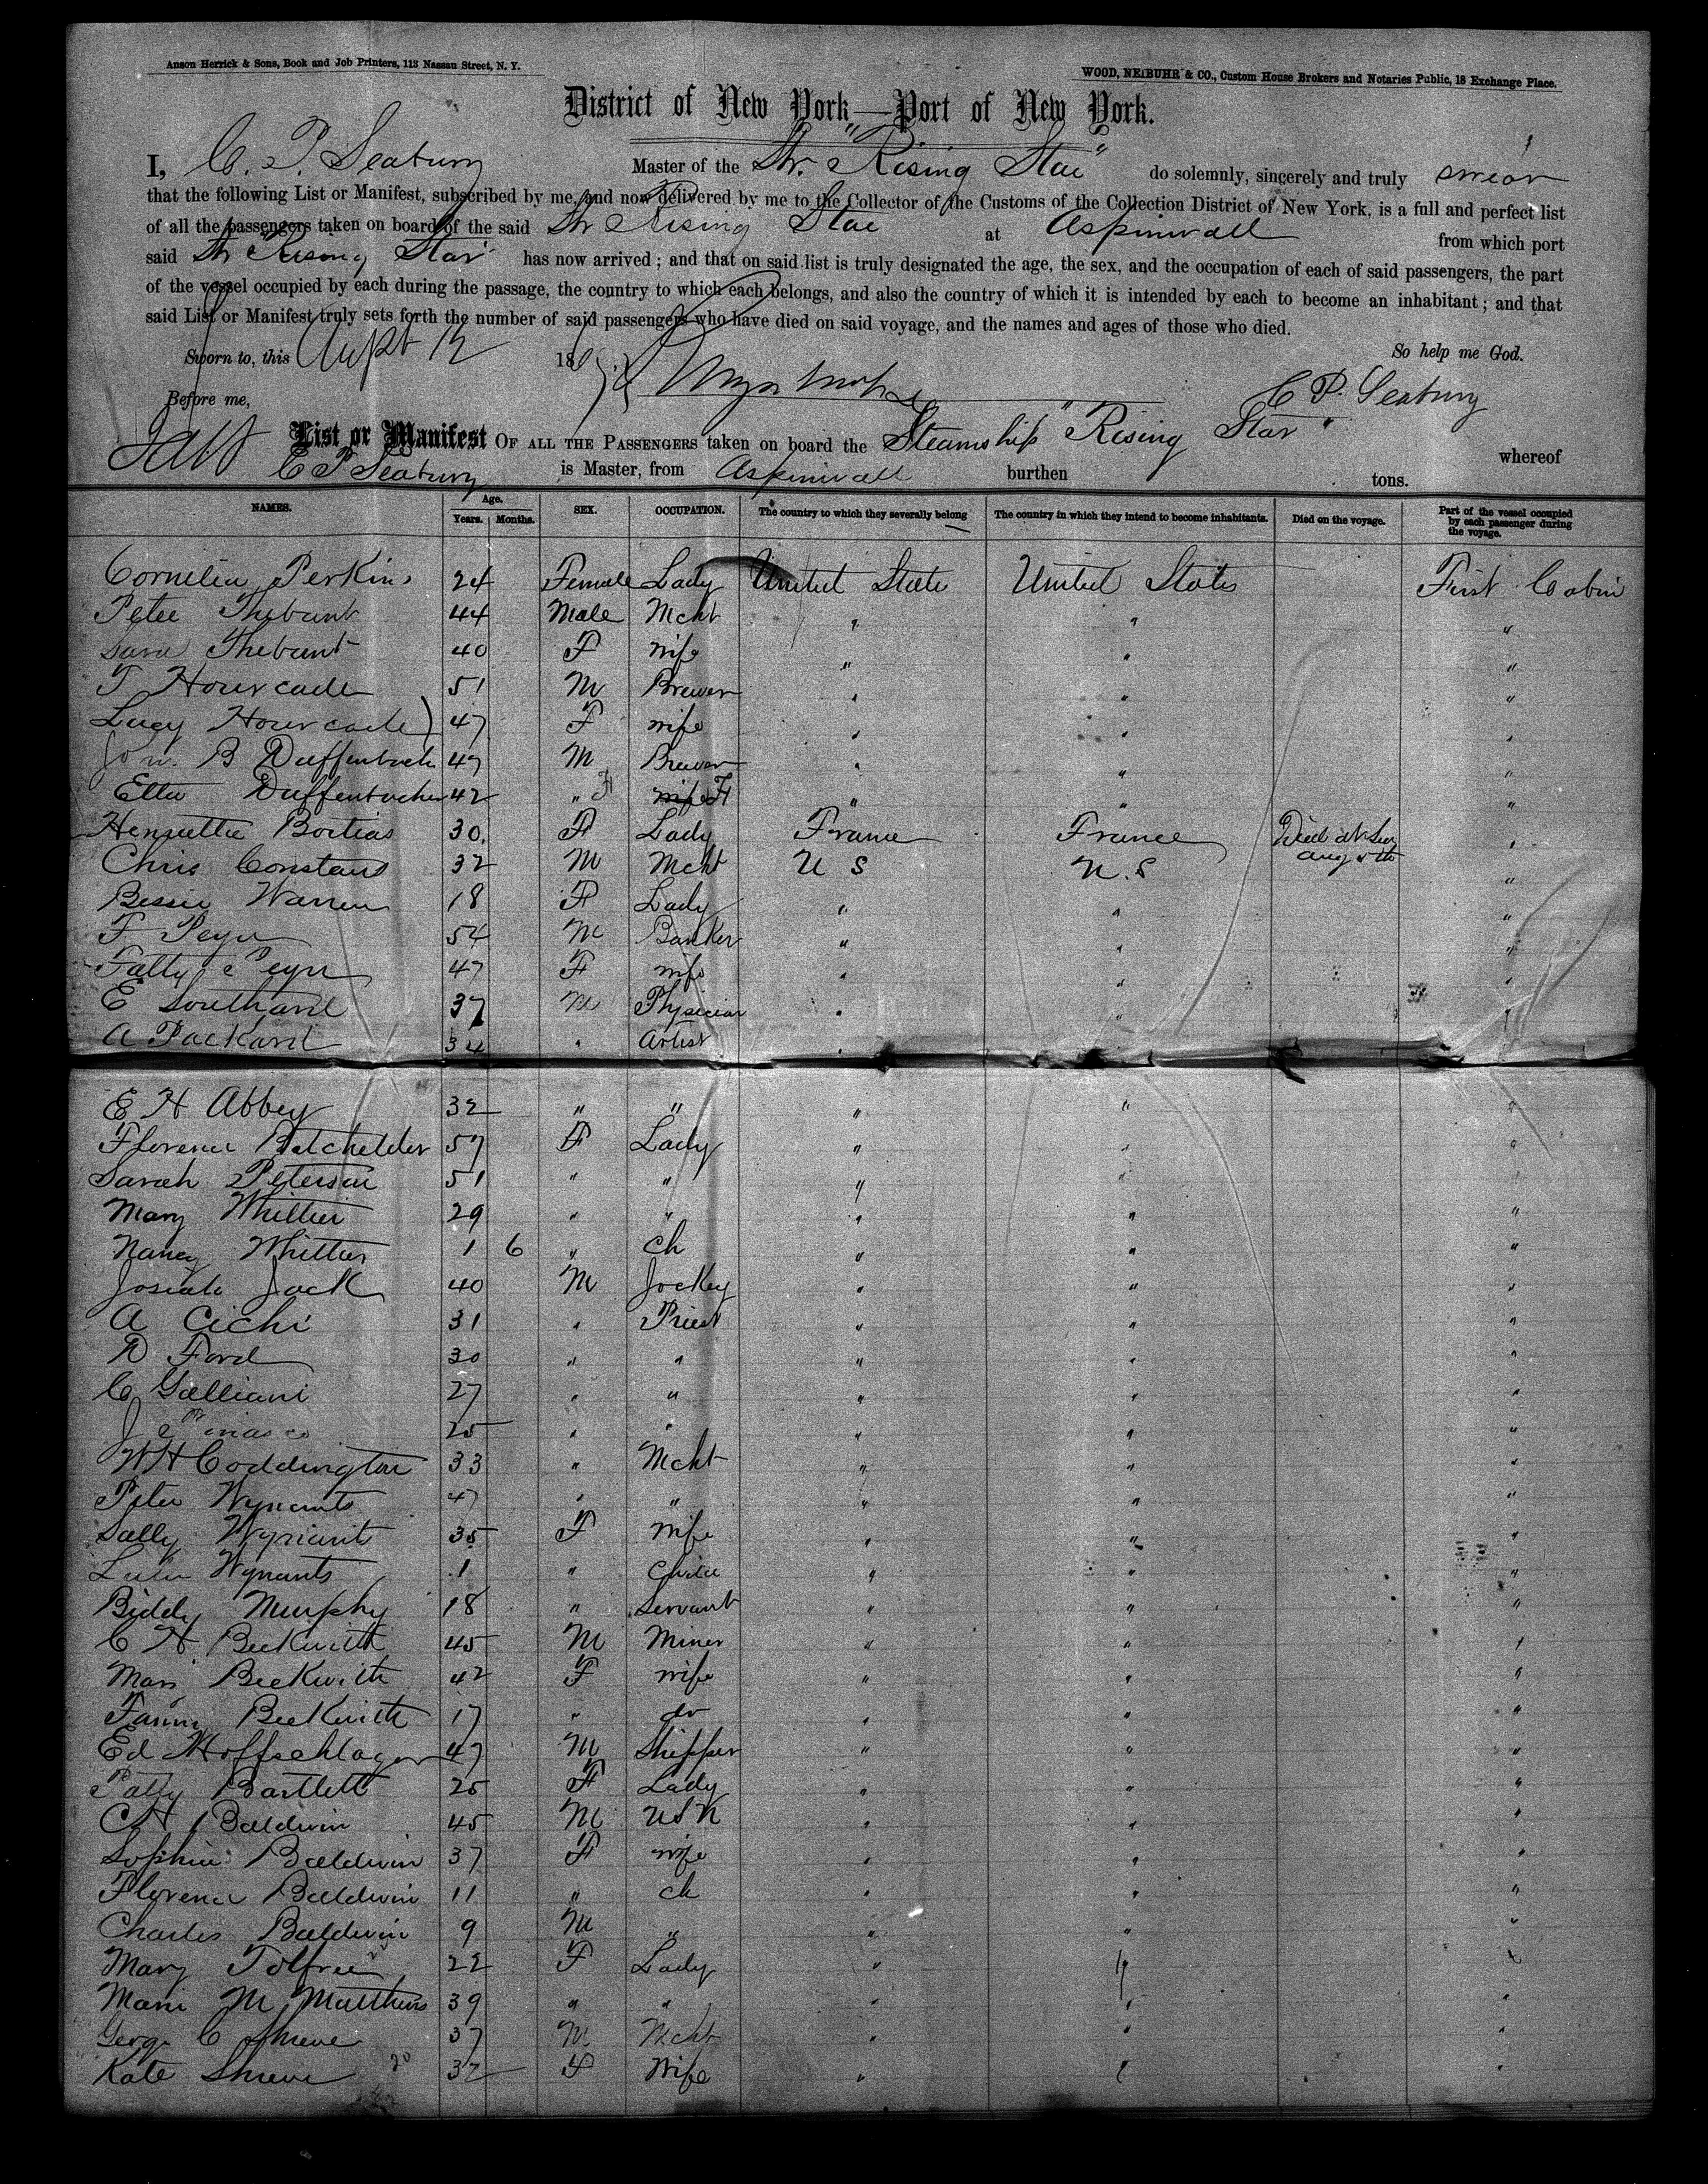 Anson Herrick & Sons, Book and Job Printers, 113 Nassau Street, N. Y.
WOOD, NEIBUHR & CO., Custom House Brokers and Notaries Public, 18 Exchange Place.
District of New York—Port of New York.
I, C. P. Seabury Master of the Str. "Rising Star" do solemnly, sincerely and truly swear
that the following List or Manifest, subscribed by me, and now delivered by me to the Collector of the Customs of the Collection District of New York, is a full and perfect list
of all the passengers taken on board of the said Str Rising Star at Aspinwall from which port
said Str "Rising Star" has now arrived; and that on said list is truly designated the age, the sex, and the occupation of each of said passengers, the part
of the vessel occupied by each during the passage, the country to which each belongs, and also the country of which it is intended by each to become an inhabitant; and that
said List or Manifest truly sets forth the number of said passengers who have died on said voyage, and the names and ages of those who died.
Sworn to, this 12 186 So help me God.
Before me, C P. Seabury
List or Manifest OF ALL THE PASSENGERS taken on board the Steamship "Rising Star" whereof
C P Seabury is Master, from Aspinwall burthen tons.
NAMES. Age. Years. Months. SEX. OCCUPATION. The country to which they severally belong The country in which they intend to become inhabitants. Died on the voyage. Part of the vessel occupied by each passenger during the voyage.
Cornelia Perkins 24 Female Lady United State United States First Cabin
Peter Thebaut 44 Male Mcht " " "
Sara Thebaut 40 F wife " " "
T Hourcade 51 M Brewer " " "
Lucy Hourcade 47 F wife " " "
B Duffenbach 47 M Brewer " " "
Etta Duffenbacher 42 " F wife F " " "
Henrietta Bortias 30 F Lady France France Died at Sea Aug "
Chris Constans 32 M Mcht U S U. S "
Bessie Warren 18 F Lady " " "
F Peyn 54 M Banker " " "
Peyn 47 F wife " " "
E Southard 37 M Physician " " "
A Packard 34 " Artist "
E H Abbey 32 " " " " "
Florence Batchelder 57 F Lady " " "
Sarah Peterson 51 " " " "
Mary Whittier 29 " " " " "
Nancy Whittier 1 6 " Ch " " "
Josiah Jack 40 M Jockey " " "
A Cichi 31 " Priest " " "
D Ford 30 " " " " "
C Galliani 27 " " " " "
J 25 " " " " "
W H Coddington 33 " Mcht " " "
Peter Wynants 47 " " " " "
Sally Wynants 35 F wife " " "
Wynants 1 " Child " " "
Biddy Murphy 18 " Servant " " "
C H Beckwith 45 M Miner " " "
Mari Beckwith 42 F wife " " "
Fanny Beckwith 17 " do " " "
Ed Hoffschlager 47 M Shipper " " "
Patty Bartlett 25 F Lady " " "
C H Baldwin 45 M USN " " "
Sophia Baldwin 37 F wife " " "
Florence Baldwin 11 " ch " " "
Charles Baldwin 9 M " " " "
Mary Tolfree 22 F Lady " " "
Marie M Matthews 39 " " " " "
George C Shreve 37 M Mcht " " "
Kate Shreve 32 F Wife " " "